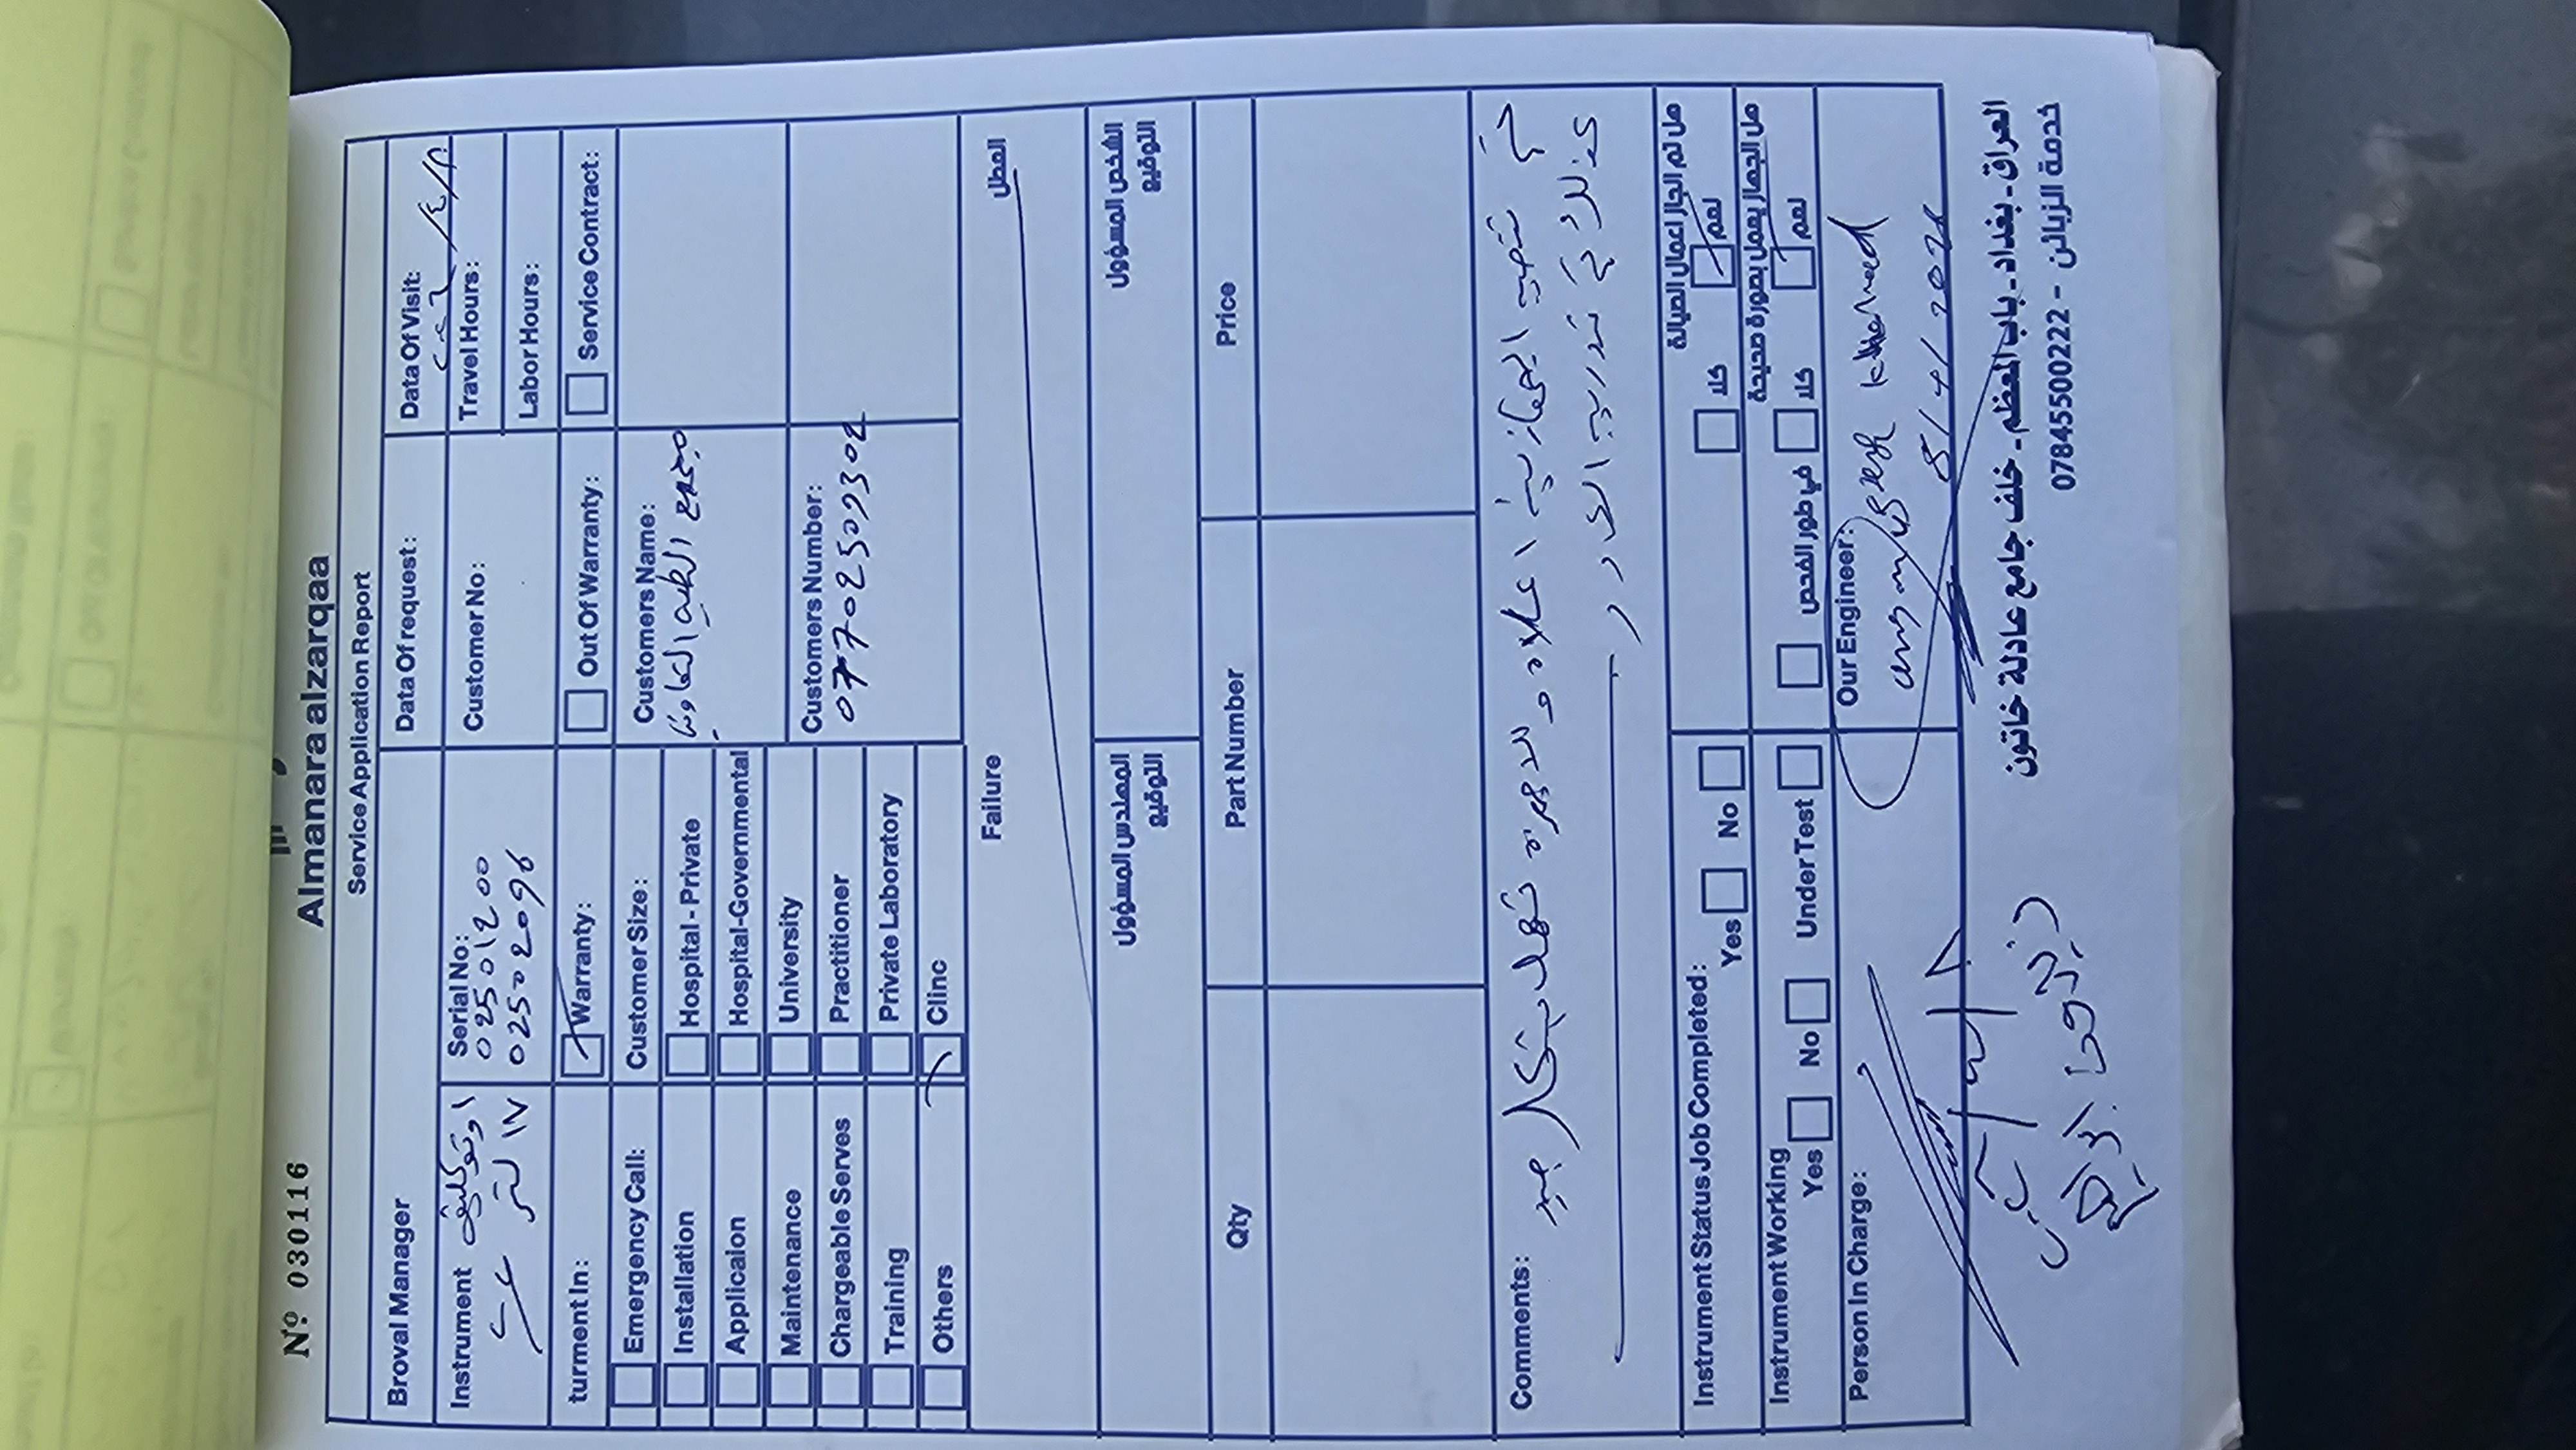 Nº 030116
Almanara alzarqaa
Service Application Report
Broval Manager
Data Of request:
Data Of Visit:
Instrument اوتوكليف
١٧ لتر
عدد
Serial No:
0250 1200
0250 2096
Customer No:
Travel Hours:
Labor Hours:
turment In:
Warranty:
Out Of Warranty:
Service Contract:
Emergency Call:
Customer Size:
Customers Name:
المجمع الطبي التعاوني
Installation
Hospital - Private
Applicaion
Hospital-Governmental
Maintenance
University
Customers Number:
07702509302
Chargeable Serves
Practitioner
Training
Private Laboratory
Others
Clinc
Failure
العطل
المهندس المسؤول
التوقيع
الشخص المسؤول
التوقيع
Qty
Part Number
Price
Comments:
تم تنصيب الجهازين اعلاه والاجهزة تعمل بشكل جيد
كذلك تم تدريب الكادر
Instrument Status Job Completed:
Yes
No
هل تم انجاز اعمال الصيانة
كلا
نعم
Instrument Working
Yes
No
Under Test
هل الجهاز يعمل بصورة صحيحة
في طور الفحص
كلا
نعم
Person In Charge:
Our Engineer:
8/4/2026
العراق - بغداد - باب المعظم - خلف جامع عادلة خاتون
خدمة الزبائن - 07845500222